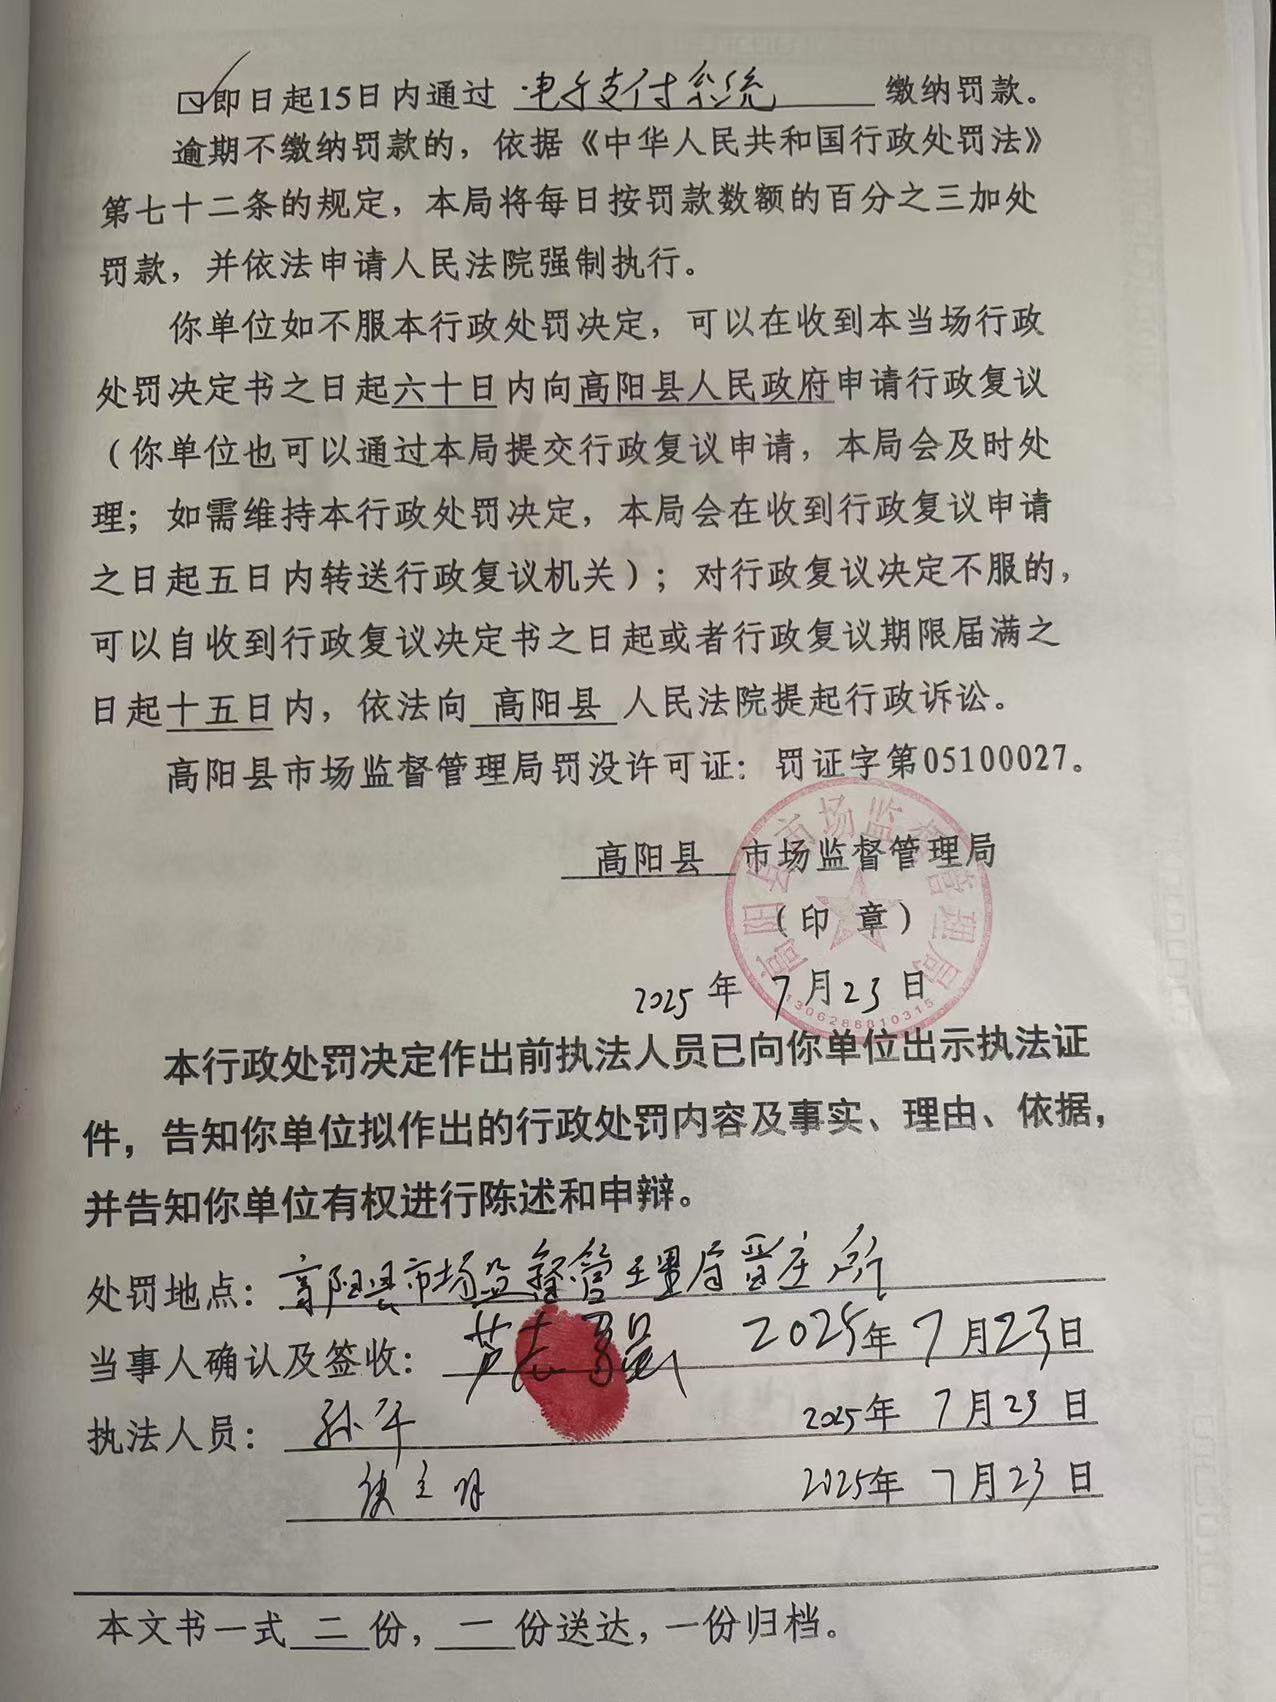 ☑即日起15日内通过 电子支付系统 缴纳罚款。
逾期不缴纳罚款的，依据《中华人民共和国行政处罚法》
第七十二条的规定，本局将每日按罚款数额的百分之三加处
罚款，并依法申请人民法院强制执行。
你单位如不服本行政处罚决定，可以在收到本当场行政
处罚决定书之日起六十日内向高阳县人民政府申请行政复议
（你单位也可以通过本局提交行政复议申请，本局会及时处
理；如需维持本行政处罚决定，本局会在收到行政复议申请
之日起五日内转送行政复议机关）；对行政复议决定不服的，
可以自收到行政复议决定书之日起或者行政复议期限届满之
日起十五日内，依法向 高阳县 人民法院提起行政诉讼。
高阳县市场监督管理局罚没许可证：罚证字第05100027。
高阳县 市场监督管理局
（印 章）
高阳县市场监督管理局
1306286810315
2025 年 7 月 23 日
本行政处罚决定作出前执法人员已向你单位出示执法证
件，告知你单位拟作出的行政处罚内容及事实、理由、依据，
并告知你单位有权进行陈述和申辩。
处罚地点：高阳县市场监督管理局晋庄所
当事人确认及签收： 2025年 7 月23日
执法人员： 孙 2025年 7 月23 日
2025年 7 月23 日
本文书一式 二 份， 一 份送达，一份归档。